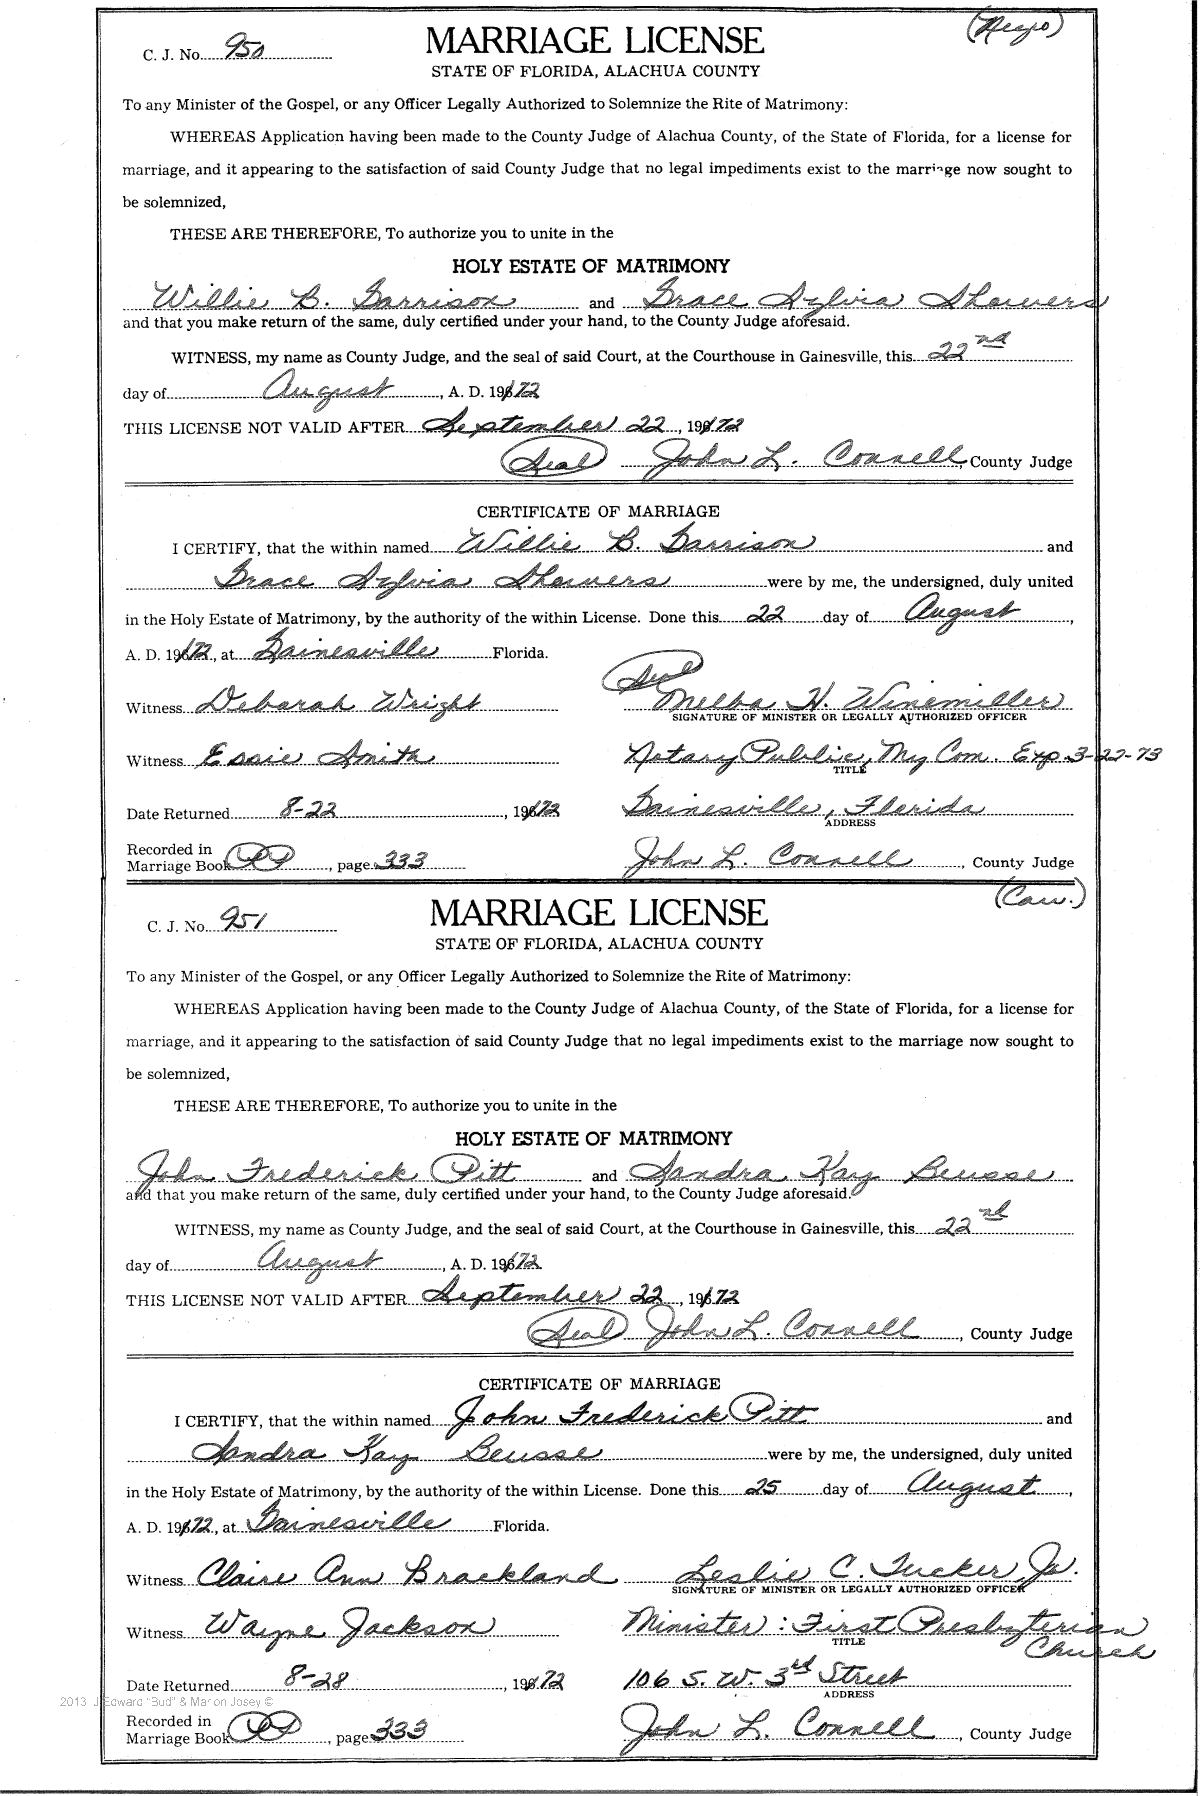 (Negro)
C. J. No. 950
MARRIAGE LICENSE
STATE OF FLORIDA, ALACHUA COUNTY
To any Minister of the Gospel, or any Officer Legally Authorized to Solemnize the Rite of Matrimony:
WHEREAS Application having been made to the County Judge of Alachua County, of the State of Florida, for a license for
marriage, and it appearing to the satisfaction of said County Judge that no legal impediments exist to the marriage now sought to
be solemnized,
THESE ARE THEREFORE, To authorize you to unite in the
HOLY ESTATE OF MATRIMONY
Willie B. Garrison and Grace Sylvia Showers
and that you make return of the same, duly certified under your hand, to the County Judge aforesaid.
WITNESS, my name as County Judge, and the seal of said Court, at the Courthouse in Gainesville, this 22nd
day of August, A. D. 1972
THIS LICENSE NOT VALID AFTER September 22, 1972
(Seal) John L. Connell, County Judge
CERTIFICATE OF MARRIAGE
I CERTIFY, that the within named Willie B. Garrison and
Grace Sylvia Showers were by me, the undersigned, duly united
in the Holy Estate of Matrimony, by the authority of the within License. Done this 22 day of August,
A. D. 1972, at Gainesville Florida.
(Seal)
Witness Deborah Wright Melba H. Winemiller
SIGNATURE OF MINISTER OR LEGALLY AUTHORIZED OFFICER
Witness Essie Smith Notary Public, My Com. Exp. 3-22-73
TITLE
Date Returned 8-22, 1972 Gainesville, Florida
ADDRESS
Recorded in
Marriage Book PP, page 333 John L. Connell, County Judge
(Cau.)
C. J. No. 951
MARRIAGE LICENSE
STATE OF FLORIDA, ALACHUA COUNTY
To any Minister of the Gospel, or any Officer Legally Authorized to Solemnize the Rite of Matrimony:
WHEREAS Application having been made to the County Judge of Alachua County, of the State of Florida, for a license for
marriage, and it appearing to the satisfaction of said County Judge that no legal impediments exist to the marriage now sought to
be solemnized,
THESE ARE THEREFORE, To authorize you to unite in the
HOLY ESTATE OF MATRIMONY
John Frederick Pitt and Sandra Kay Beusse
and that you make return of the same, duly certified under your hand, to the County Judge aforesaid.
WITNESS, my name as County Judge, and the seal of said Court, at the Courthouse in Gainesville, this 22nd
day of August, A. D. 1972
THIS LICENSE NOT VALID AFTER September 22, 1972
(Seal) John L. Connell, County Judge
CERTIFICATE OF MARRIAGE
I CERTIFY, that the within named John Frederick Pitt and
Sandra Kay Beusse were by me, the undersigned, duly united
in the Holy Estate of Matrimony, by the authority of the within License. Done this 25 day of August,
A. D. 1972, at Gainesville Florida.
Witness Claire Ann Brackland Leslie C. Tucker, Jr.
SIGNATURE OF MINISTER OR LEGALLY AUTHORIZED OFFICER
Witness Wayne Jackson Minister: First Presbyterian
TITLE Church
Date Returned 8-28, 1972 106 S. W. 3rd Street
ADDRESS
2013 J Edward "Bud" & Marion Josey ©
Recorded in
Marriage Book PP, page 333 John L. Connell, County Judge